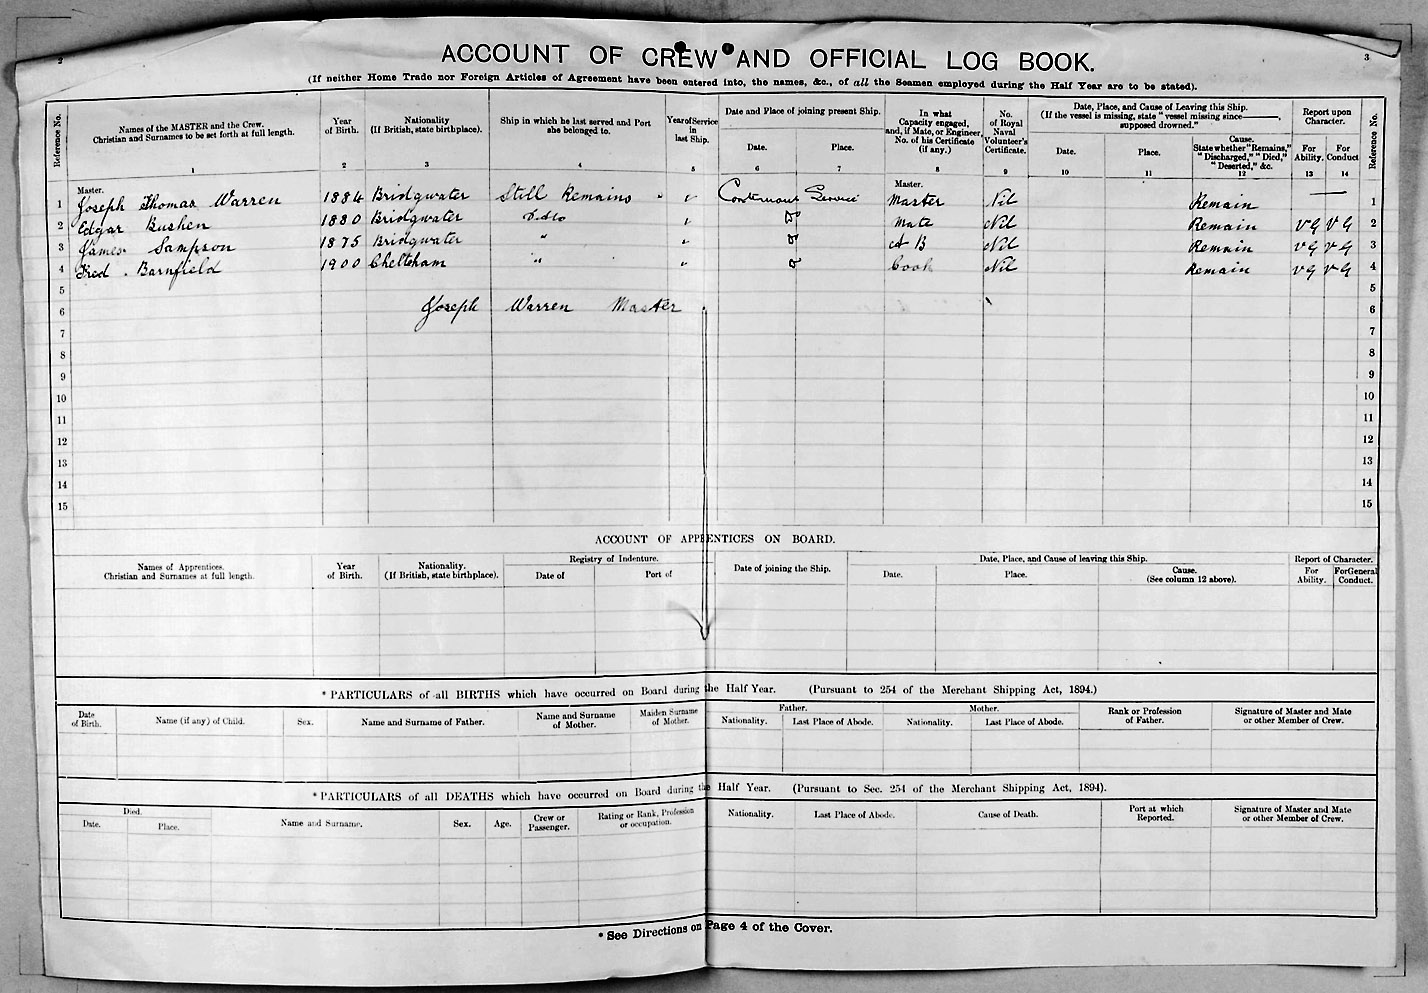 2
3
ACCOUNT OF CREW AND OFFICIAL LOG BOOK.
(If neither Home Trade nor Foreign Articles of Agreement have been entered into, the names, &c., of all the Seamen employed during the Half Year are to be stated).
Reference No. Names of the MASTER and the Crew. Christian and Surnames to be set forth at full length. Year of Birth. Nationality (If British, state birthplace). Ship in which he last served and Port she belonged to. Year of Service in last Ship. Date and Place of joining present Ship. Date. Place. In what Capacity engaged, and, if Mate, or Engineer, No. of his Certificate (if any.) No. of Royal Naval Volunteer's Certificate. Date, Place, and Cause of Leaving this Ship. (If the vessel is missing, state "vessel missing since———, supposed drowned." Date. Place. Cause. State whether "Remains," "Discharged," "Died," "Deserted," &c. Report upon Character. For Ability. For Conduct Reference No.
1 2 3 4 5 6 7 8 9 10 11 12 13 14
Master. Master.
1 Joseph Thomas Warren 1884 Bridgwater Still Remains " " Continuous Service Master Nil Remain — 1
2 Edgar Bushen 1880 Bridgwater Ditto " Do Mate Nil Remain VG VG 2
3 James Sampson 1875 Bridgwater " " Do A B Nil Remain VG VG 3
4 Fred Barnfield 1900 Cheltenham " " Do Cook Nil Remain VG VG 4
5 5
6 Joseph Warren Master 6
7 7
8 8
9 9
10 10
11 11
12 12
13 13
14 14
15 15
ACCOUNT OF APPRENTICES ON BOARD.
Names of Apprentices. Christian and Surnames at full length. Year of Birth. Nationality. (If British, state birthplace). Registry of Indenture. Date of Port of Date of joining the Ship. Date, Place, and Cause of leaving this Ship. Date. Place. Cause. (See column 12 above). Report of Character. For Ability. For General Conduct.
* PARTICULARS of all BIRTHS which have occurred on Board during the Half Year. (Pursuant to 254 of the Merchant Shipping Act, 1894.)
Date of Birth. Name (if any) of Child. Sex. Name and Surname of Father. Name and Surname of Mother. Maiden Surname of Mother. Father. Nationality. Last Place of Abode. Mother. Nationality. Last Place of Abode. Rank or Profession of Father. Signature of Master and Mate or other Member of Crew.
* PARTICULARS of all DEATHS which have occurred on Board during the Half Year. (Pursuant to Sec. 254 of the Merchant Shipping Act, 1894).
Died. Date. Place. Name and Surname. Sex. Age. Crew or Passenger. Rating or Rank, Profession or occupation. Nationality. Last Place of Abode. Cause of Death. Port at which Reported. Signature of Master and Mate or other Member of Crew.
* See Directions on Page 4 of the Cover.